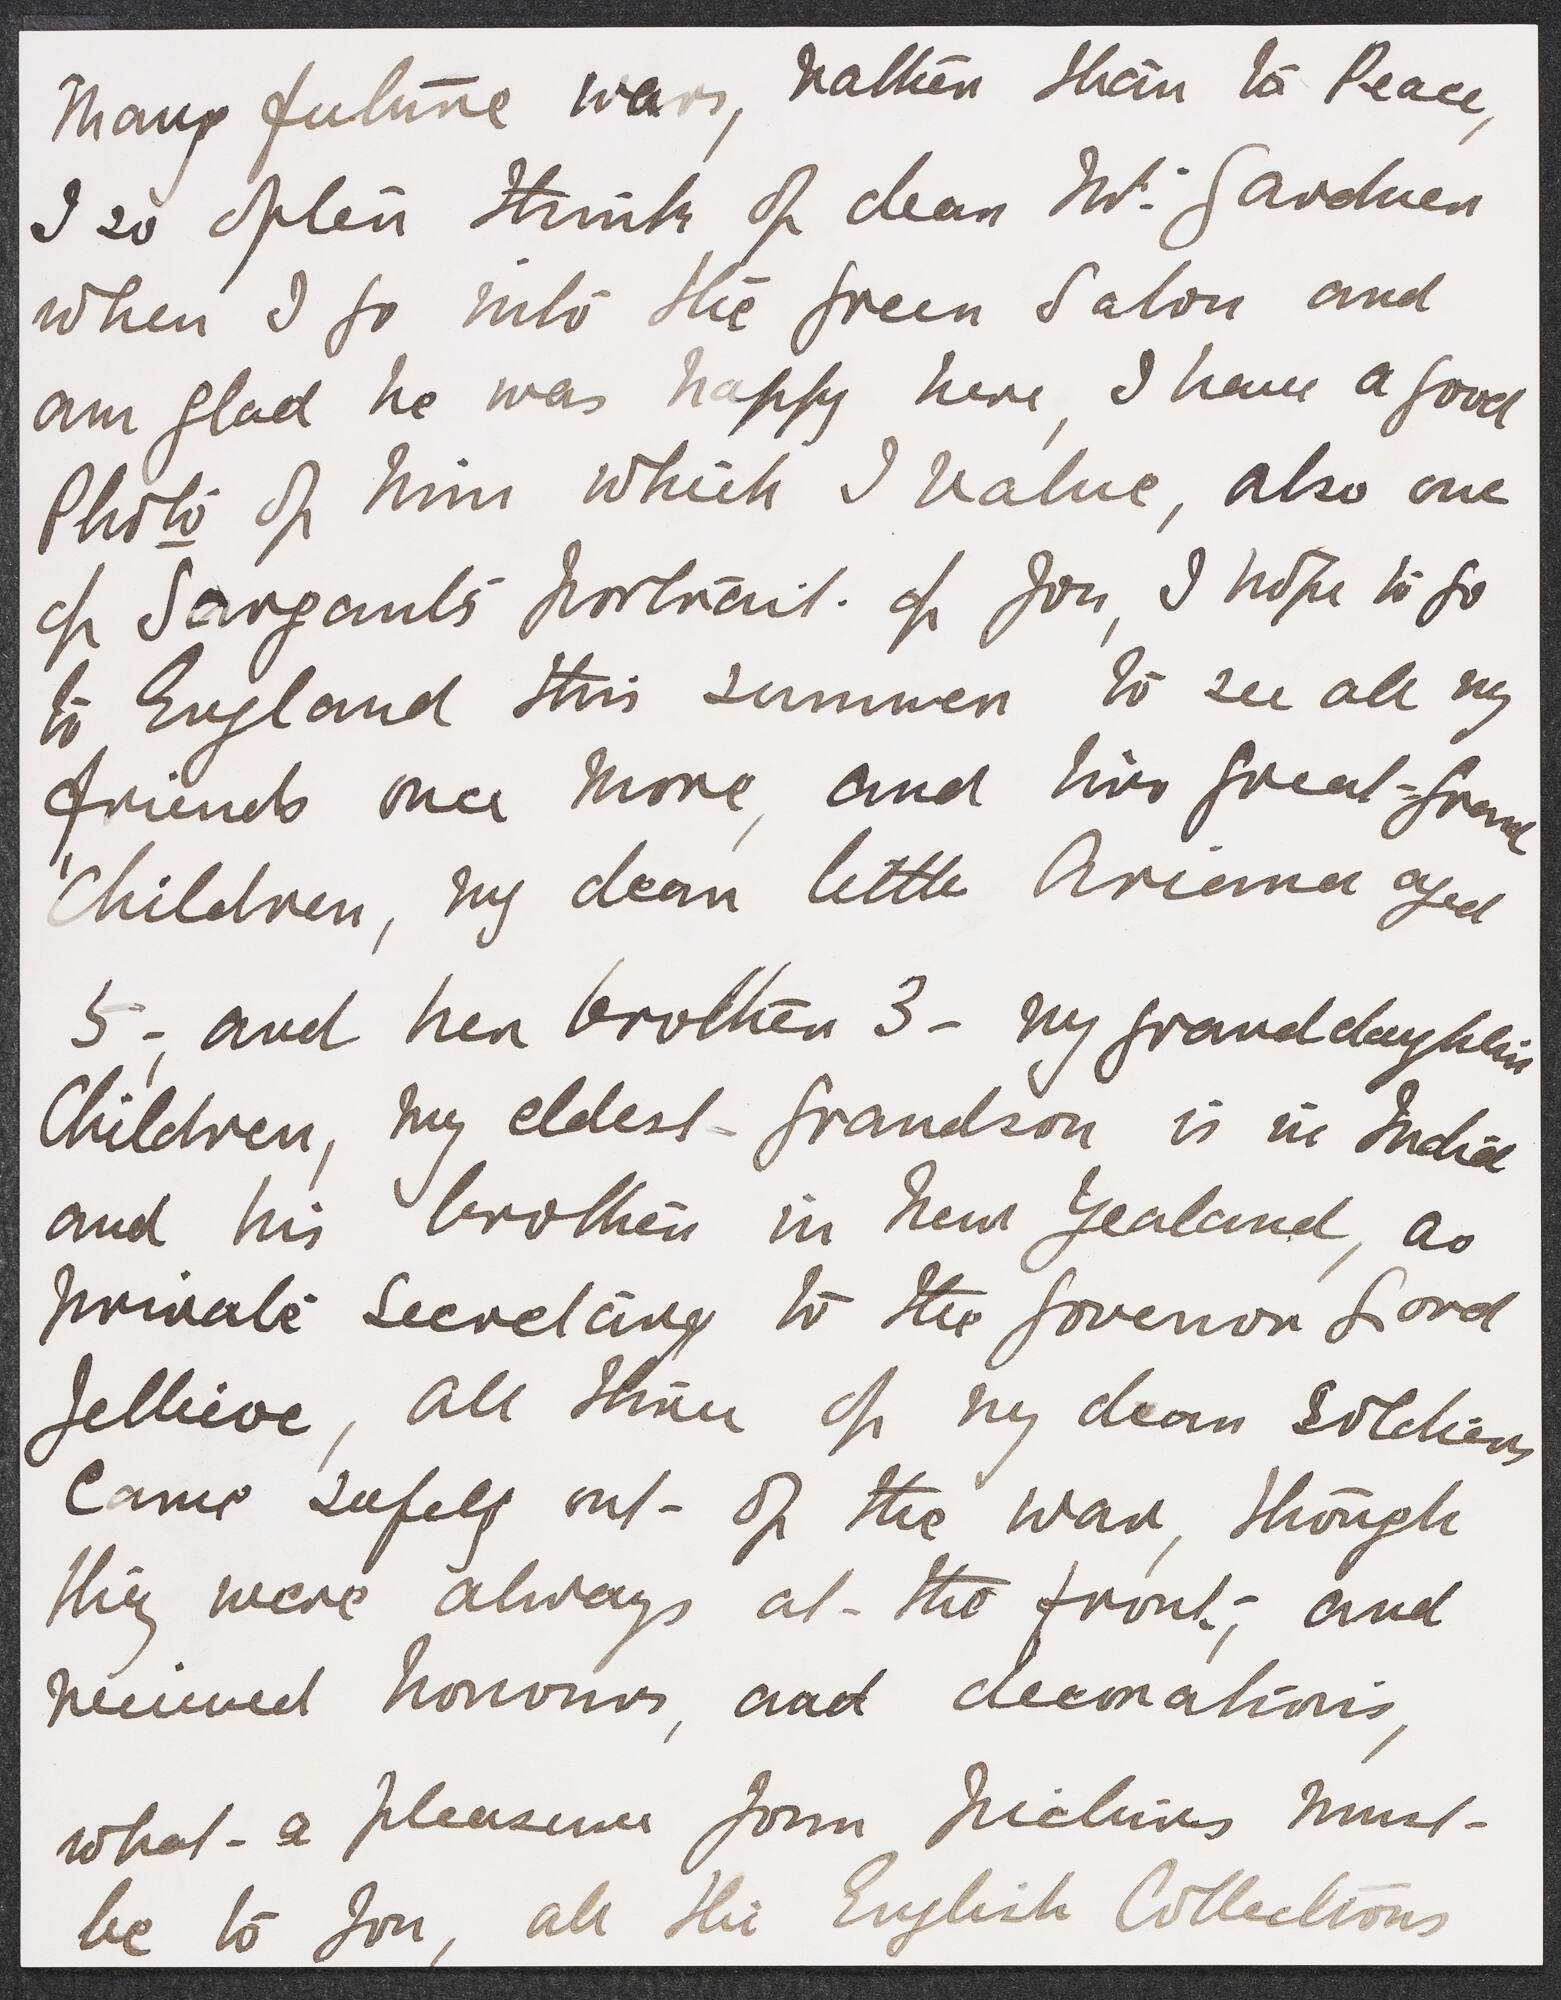 many future wars, rather than to Peace,
I so often think of dear Mr. Gardner
when I go into the green Salon and
am glad he was happy here, I have a good
Photo of him which I value, also one
of Sargants portrait. of you, I hope to go
to England this summer to see all my
friends once more, and two great-grand
Children, my dear little Arianna aged
5-, and her brother 3- my granddaughters
Children, my eldest- grandson is in India
and his brother in New Zealand, as
private Secretary to the Govenor Lord
Jellicoe, all three of my dear soldiers
came safely out- of the war, though
they were always at- the front-, and
recieved honours, and decorations,
what- a pleasure your pictures must-
be to you, all the English Collections